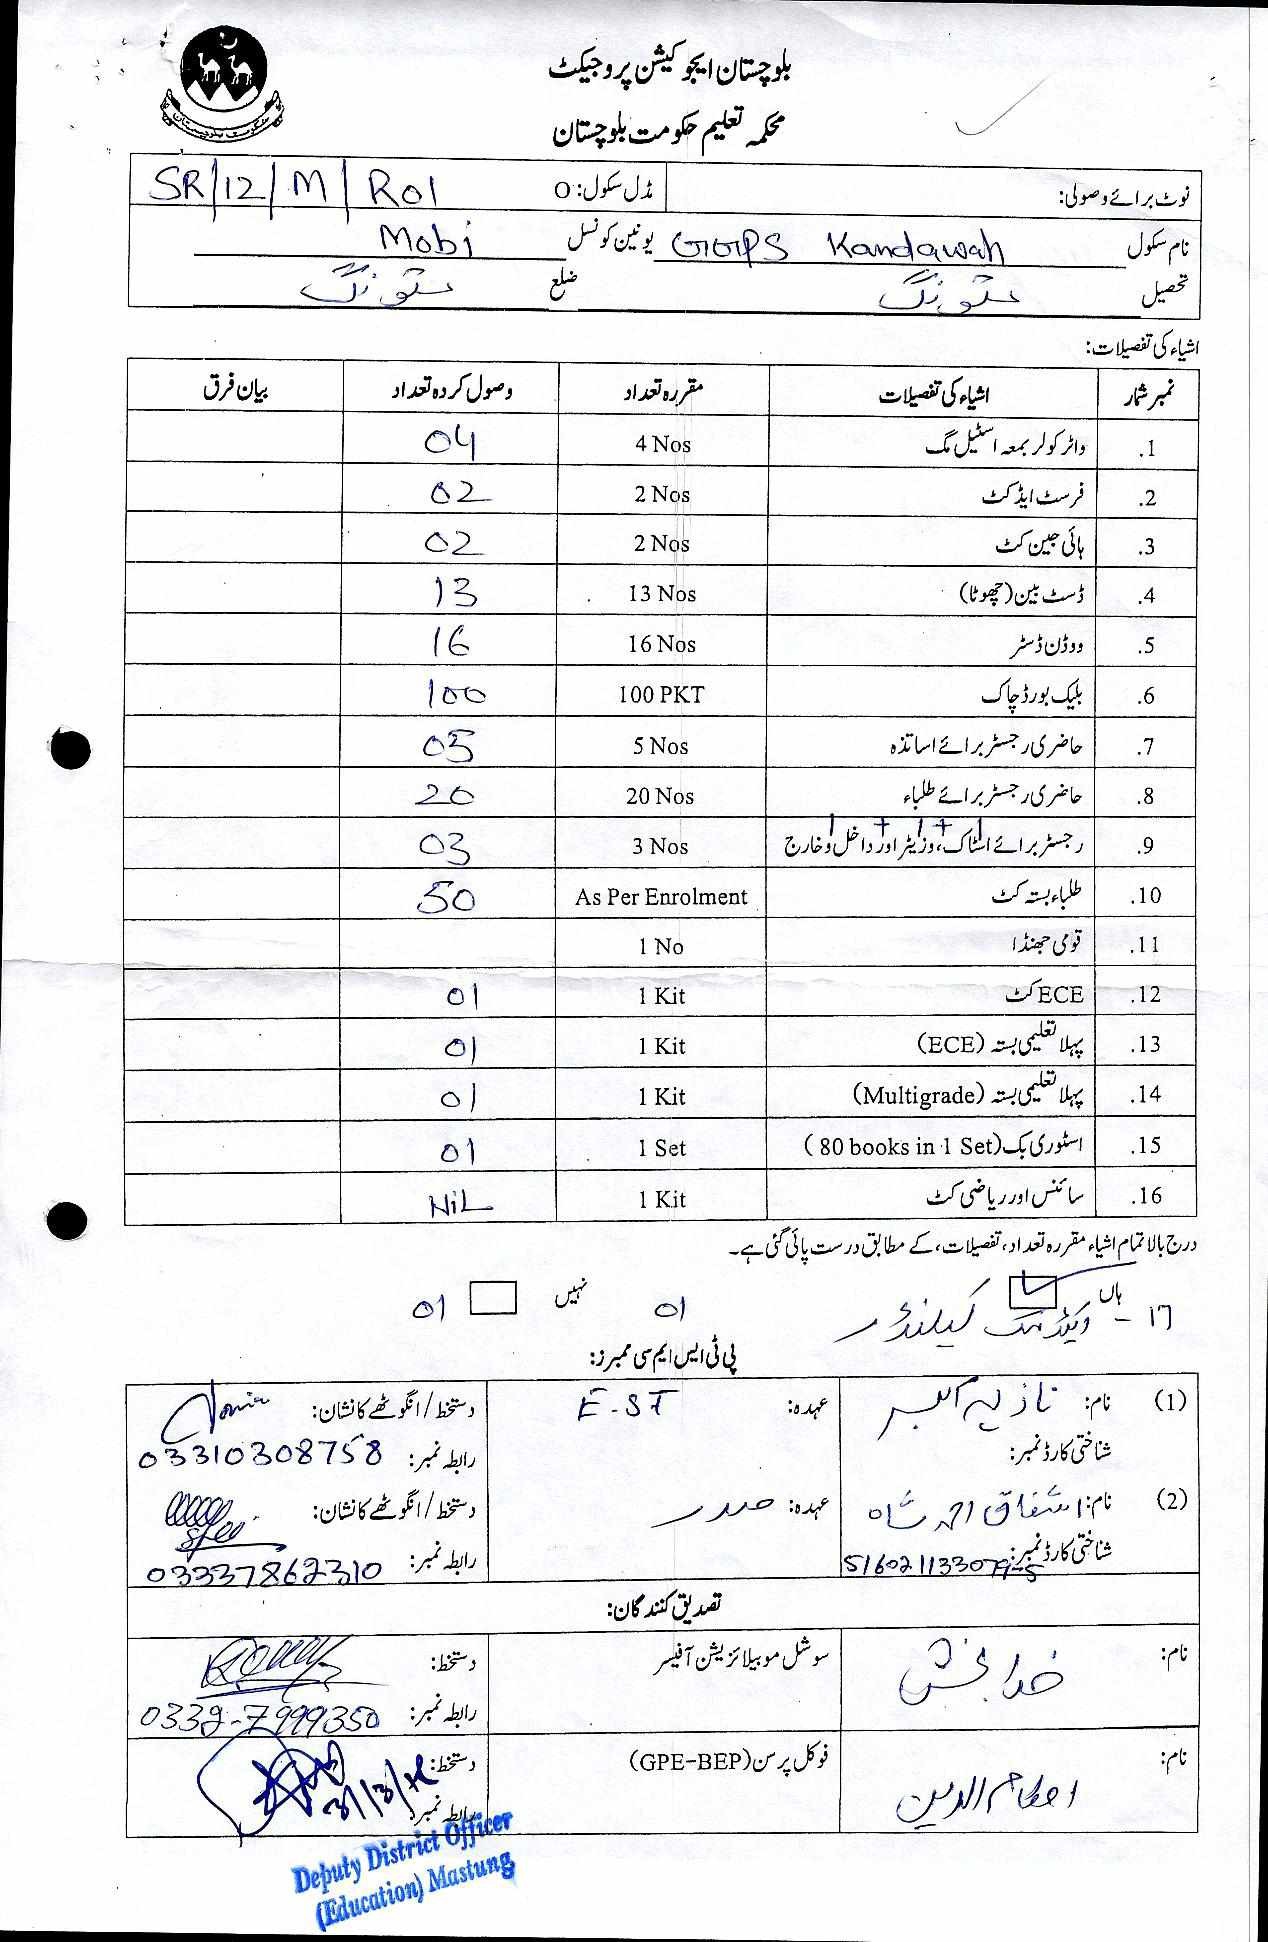 بلوچستان ایجوکیشن پروجیکٹ
محکمہ تعلیم حکومت بلوچستان
نوٹ برائے وصولی: مڈل سکول: 0 SR/12/M/R01
نام سکول GGPS Kandawah یونین کونسل Mobi
تحصیل مستونگ ضلع مستونگ
اشیاء کی تفصیلات:
نمبر شمار اشیاء کی تفصیلات مقررہ تعداد وصول کردہ تعداد بیان فرق
1. واٹر کولر بمعہ اسٹیل مگ 4 Nos 04
2. فرسٹ ایڈ کٹ 2 Nos 02
3. ہائی جین کٹ 2 Nos 02
4. ڈسٹ بین (چھوٹا) 13 Nos 13
5. ووڈن ڈسٹر 16 Nos 16
6. بلیک بورڈ چاک 100 PKT 100
7. حاضری رجسٹر برائے اساتذہ 5 Nos 05
8. حاضری رجسٹر برائے طلباء 20 Nos 20
9. رجسٹر برائے اسٹاک، وزیٹر اور داخل و خارج 3 Nos 03
10. طلباء بستہ کٹ As Per Enrolment 50
11. قومی جھنڈا 1 No
12. ECE کٹ 1 Kit 01
13. پہلا تعلیمی بستہ (ECE) 1 Kit 01
14. پہلا تعلیمی بستہ (Multigrade) 1 Kit 01
15. اسٹوری بک (80 books in 1 Set) 1 Set 01
16. سائنس اور ریاضی کٹ 1 Kit NiL
درج بالا تمام اشیاء مقررہ تعداد، تفصیلات، کے مطابق درست پائی گئی ہے۔
ہاں نہیں
17 - کیلنڈر 01 01
پی ٹی ایس ایم سی ممبرز:
(1) نام: نازیہ اکبر عہدہ: E-ST دستخط / انگوٹھے کا نشان:
شناختی کارڈ نمبر: رابطہ نمبر: 03310308758
(2) نام: اشفاق احمد شاہ عہدہ: صدر دستخط / انگوٹھے کا نشان:
شناختی کارڈ نمبر: 5160211330795 رابطہ نمبر: 03337862310
تصدیق کنندگان:
نام: خدا بخش سوشل موبیلائزیشن آفیسر دستخط:
رابطہ نمبر: 0332-7999350
نام: احکام الدین فوکل پرسن (GPE-BEP) دستخط:
رابطہ نمبر:
Deputy District Officer
(Education) Mastung